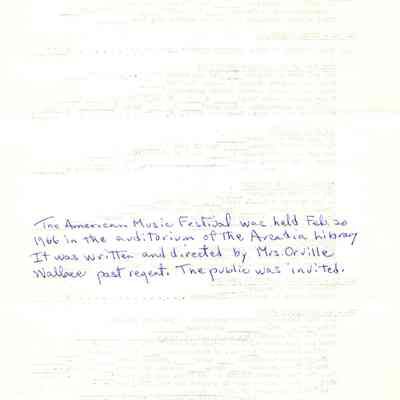 The American Music Festival was held Feb. 20
1966 in the auditorium of the Arcadia Library
It was written and directed by Mrs. Orville
Wallace past regent. The public was invited.